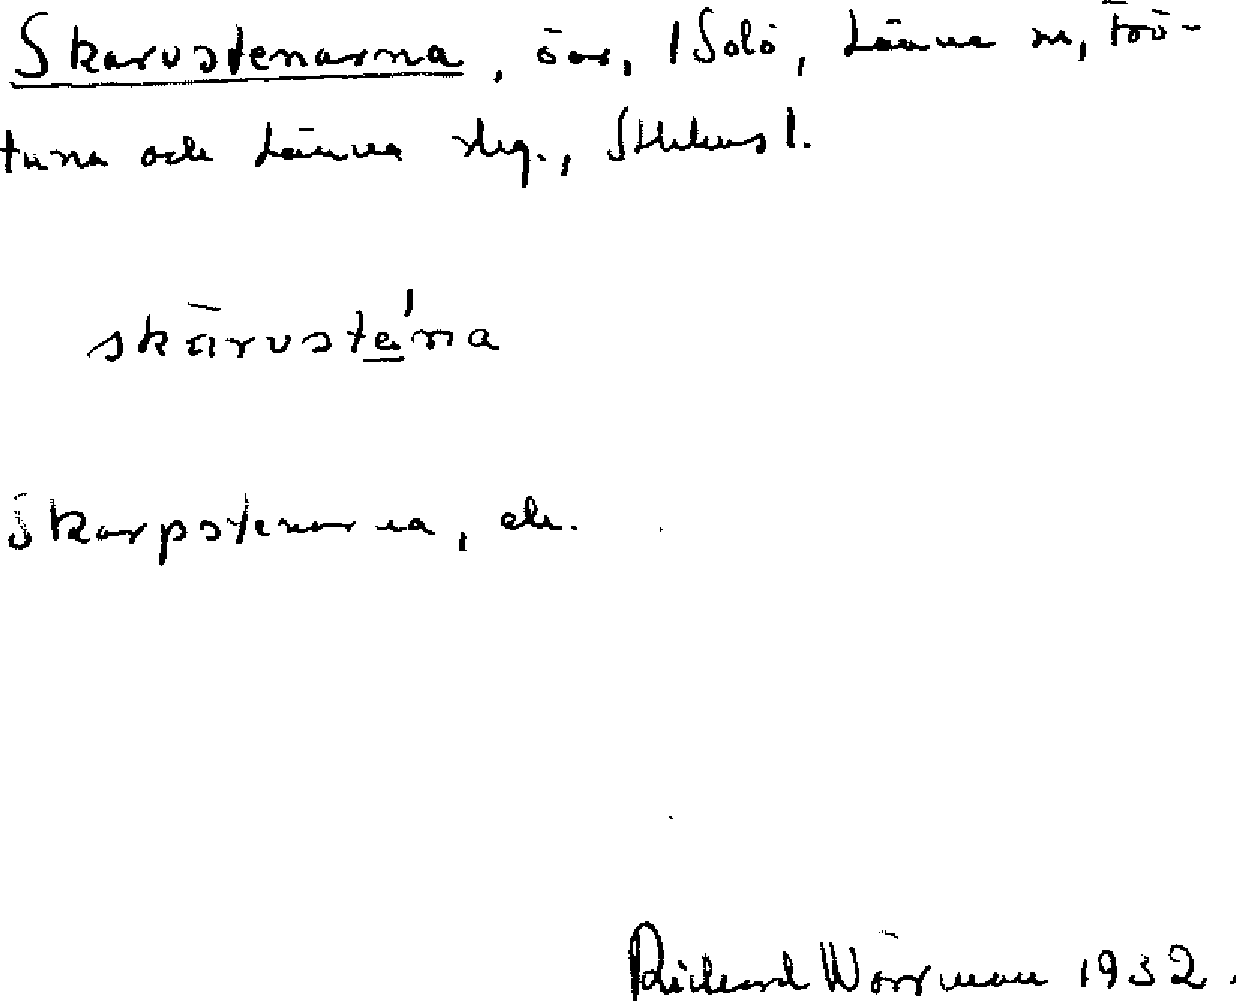 Skarvstenarna, öar, 1 Solö, Länna sn, Frö-
tuna och Länna skg., Sthlms l.
skārvsténa
Skarpstenarna, ek.
Richard Wörrman 1932.